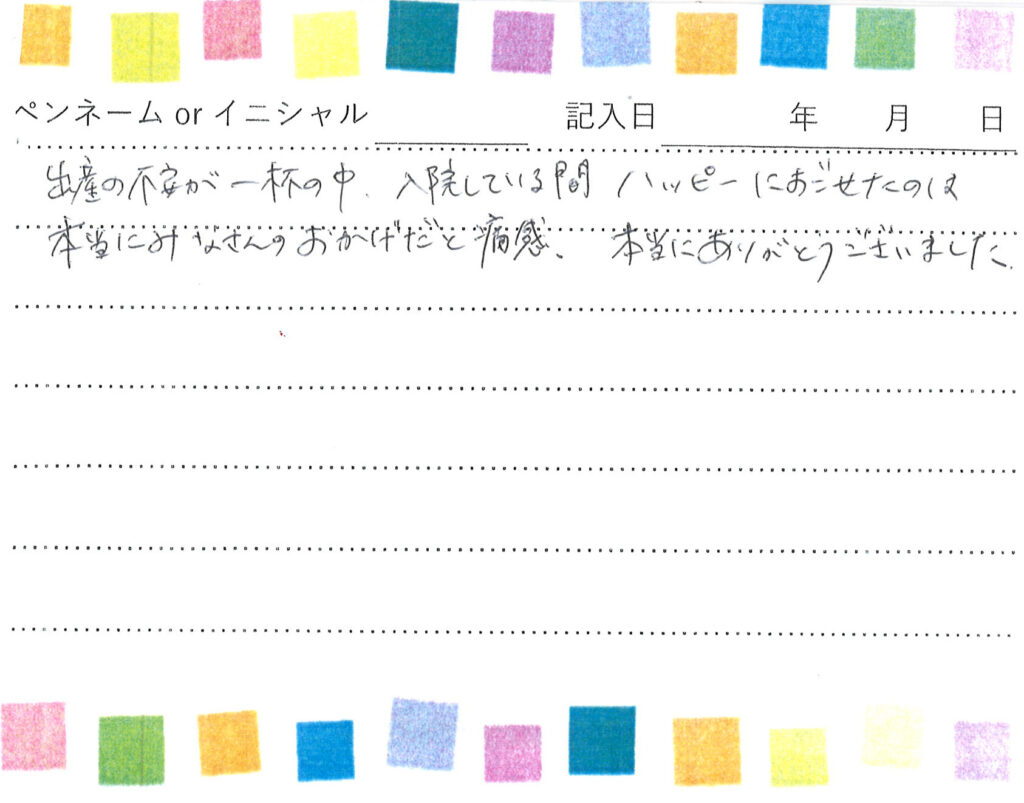 ペンネーム or イニシャル 記入日 年 月 日
出産の不安が一杯の中、入院している間 ハッピーにおごせたのは
本当にみなさんのおかげだと痛感、 本当にありがとうございました。